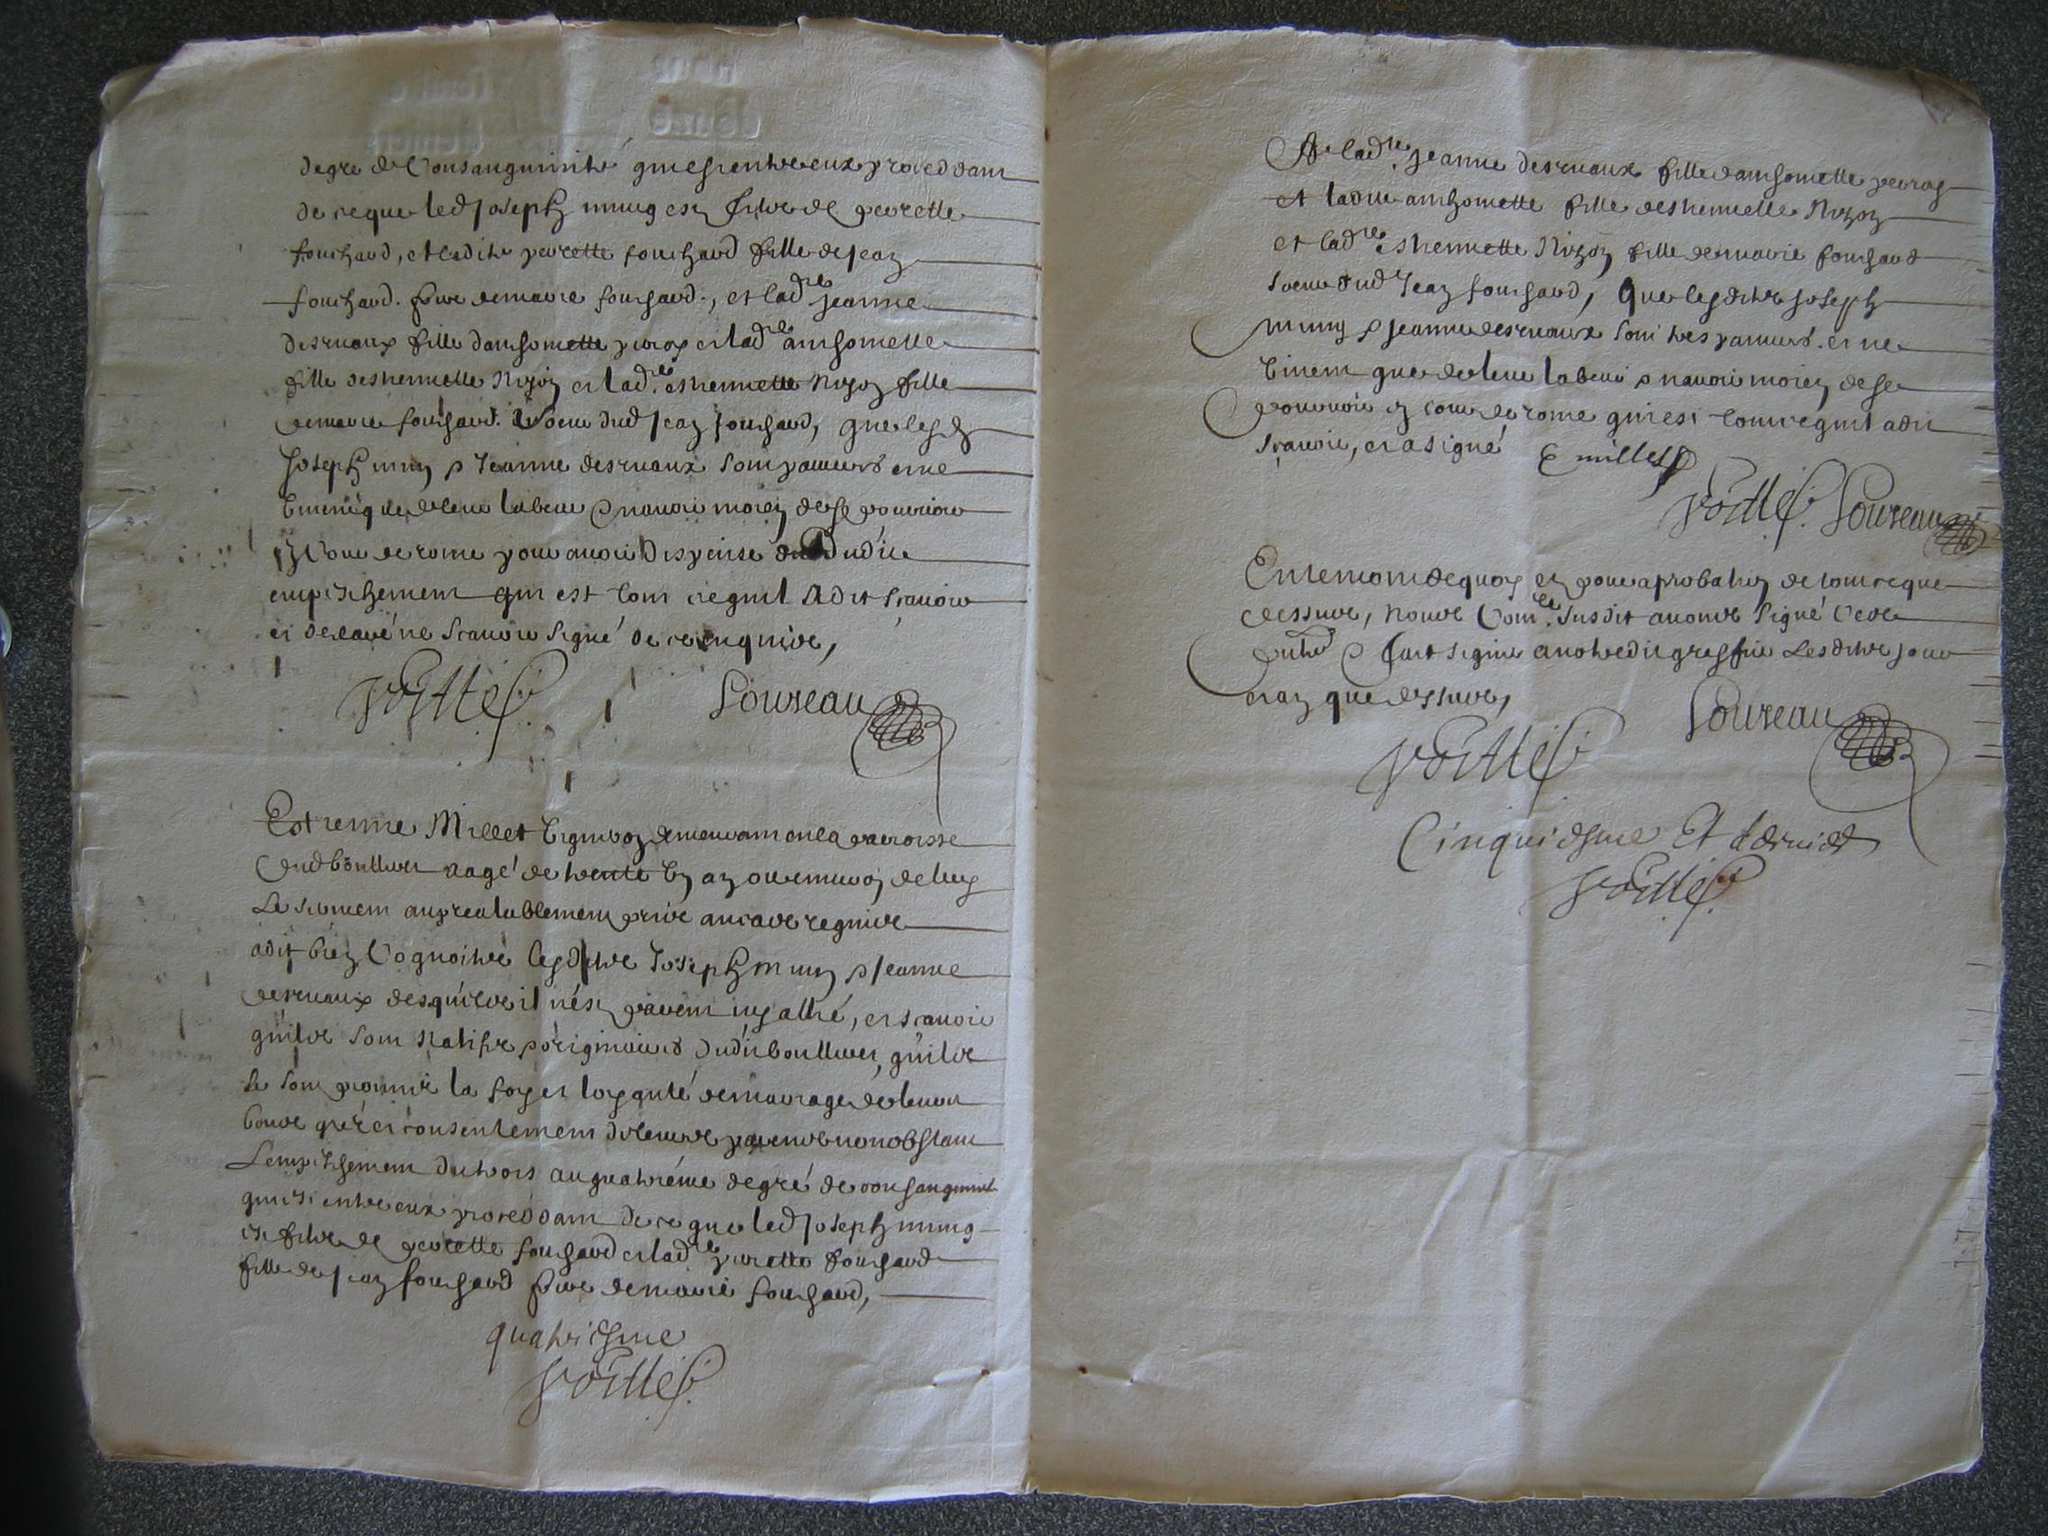 degre de Consanguinité qui est entre eux proceddant
de ce que led Joseph est filz de perrette
fouchard, et ladite perrette fouchard fille de Jean
fouchard. frere de marie fouchard., et lad.te Jeanne
desruaux fille d'anthoinette et lad.te anthoinette
fille d'estiennette Nizon et lad.te estiennette Nizon fille
de marie fouchard. soeur dud Jean fouchard, que lesd
Joseph & Jeanne desruaux sont pauvres et ne
que de leur labeur & n'avoir moien de se pourvoir
en Cour de rome pour avoir dispense dudit
empeschement qui est tout ce qu'il a dit scavoir
et declaré ne scavoir signé de ce enquis,
Voille Soureau
Estienne Millet vigneron demeurant en la parroisse
dud aagé de trente ou environ de luy
le serment au prealablement pris au cas requis
a dit bien Cognoitre lesditz Joseph & Jeanne
desruaux desquelz il n'est parent ny allié, et scavoir
qu'ilz sont natifz & originaires dudit qu'ilz
se sont promis la foy et loyauté de mariage de leurs
bons gré et consentement de leurs parens nonobstant
l'empeschement du trois au quatriéme degré de consanguinité
qui est entre eux proceddant de ce que led Joseph
est filz de perrette fouchard et lad.te perrette fouchard
fille de Jean fouchard frere de marie fouchard,
quatriesme
Voille
Et lad.te Jeanne desruaux fille d'anthoinette
et ladite anthoinette fille d'estiennette Nizon
et lad.te estiennette Nizon fille de marie fouchard
soeur dud Jean fouchard, que lesditz Joseph
& Jeanne desruaux sont tres pauvres et ne
que de leur labeur & n'avoir moien de se
pourvoir en cour de rome qui est tout ce qu'il a dit
scavoir, et a signé E millet
Voille Soureau
En temoin de quoy et pour aprobation de tout ce que
dessus, Nous Com.re susdit avons signé
& fait signer a notredit greffier lesditz jour
et an que dessus,
Voille Soureau
Cinquiesme Et dernier
Voille